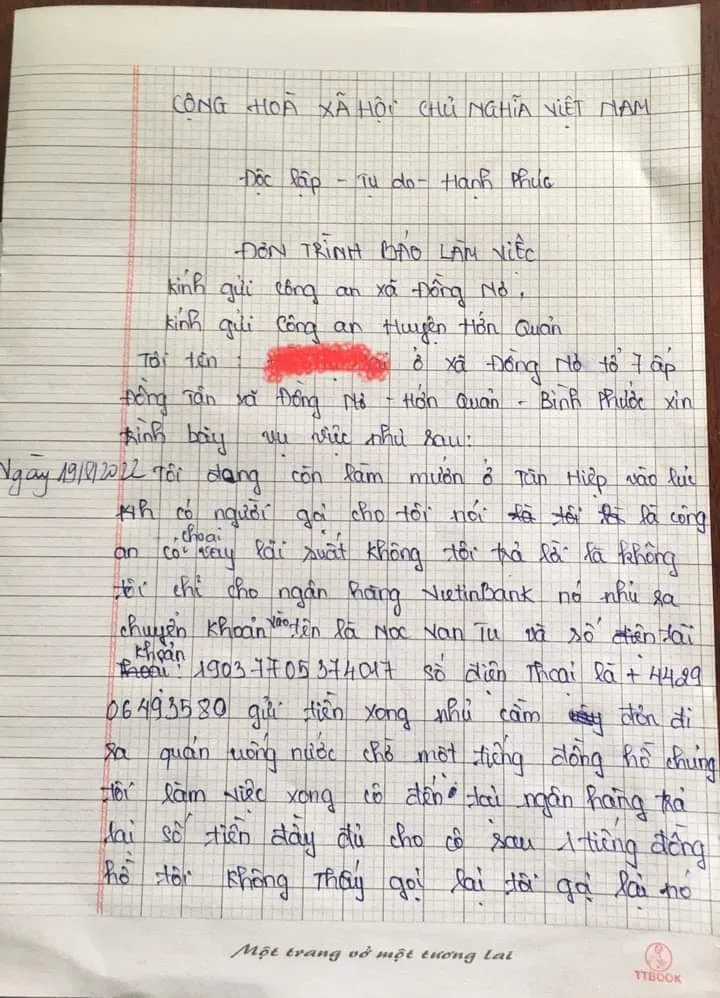 CỘNG HOÀ XÃ HỘI CHỦ NGHĨA VIỆT NAM
Độc lập - Tự do - Hạnh Phúc
ĐƠN TRÌNH BÁO LÀM VIỆC
kính gửi công an xã Đồng Nơ,
kính gửi Công an Huyện Hớn Quản
Tôi tên : ở xã Đồng Nơ tổ 7 ấp
Đồng Tân xã Đồng Nơ - Hớn Quản - Bình Phước xin
trình bày vụ việc như sau:
Ngày 2022 Tôi dang còn làm mướn ở Tân Hiệp vào lúc
có người gọi cho tôi nói là công
choai
an có vay lãi xuất không tôi trả lời là không
tôi chỉ cho ngân hàng VietinBank nó nhủ ra
chuyển khoản vào tên là Noc Van Tu và số tài
khoản
: 19037705374017 số điện Thoại là + 4429
06493580 gửi tiền xong nhủ cầm đơn đi
ra quán uống nước chờ một tiếng đồng hồ chúng
tôi làm việc xong cô đến tại ngân hàng trả
lại số tiền đầy đủ cho cô sau 1 tiếng đồng
hồ tôi không Thấy gọi lại tôi gọi lại nó
Một trang vở một tương lai
TTBOOK